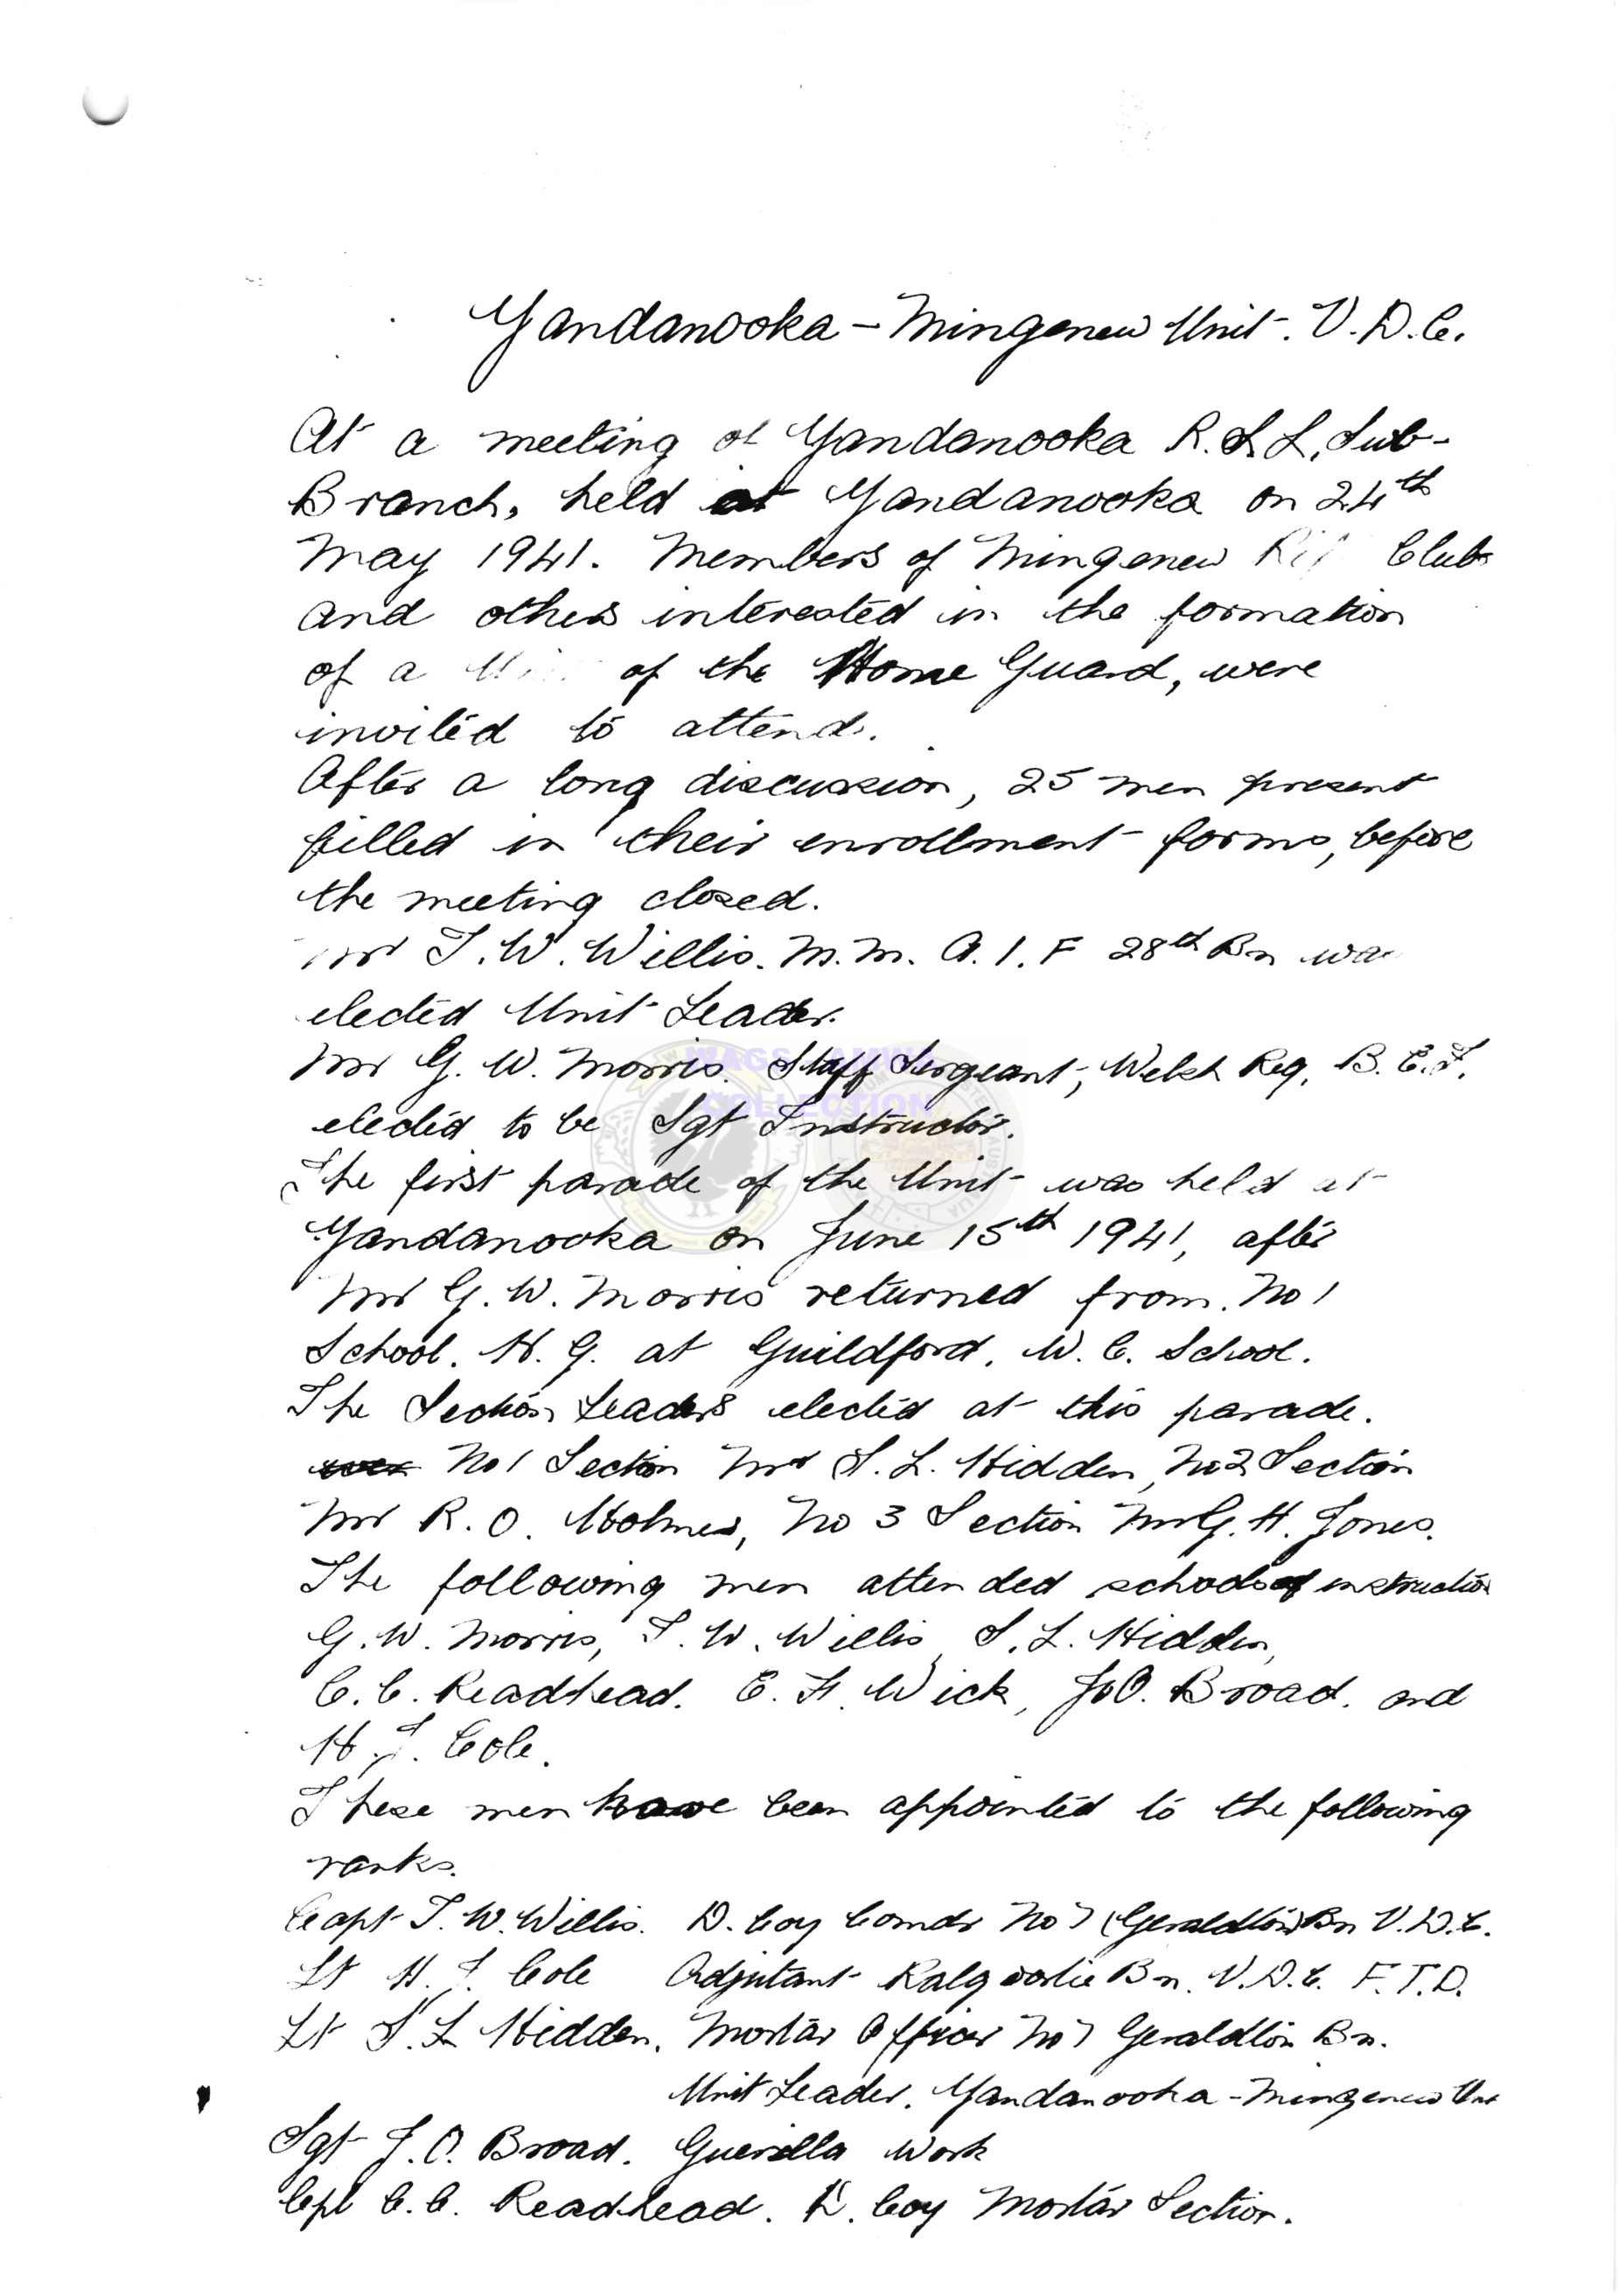 Yandanooka – Mingenew Unit. V.D.C.
At a meeting of Yandanooka R.S.L. Sub-
Branch, held at Yandanooka on 24th
May 1941. Members of Mingenew Club
and others interested in the formation
of a of the Home Guard, were
invited to attend.
After a long discussion, 25 men present
filled in their enrollment forms, before
the meeting closed.
Mr T.W. Willis. M.M. A.I.F 28th Bn was
elected Unit Leader.
Mr G.W. Morris. Staff Sergeant, Welsh Reg. B.E.F.
elected to be Sgt Instructor.
The first parade of the Unit was held at
Yandanooka on June 15th 1941, after
Mr G.W. Morris returned from. No 1
School. H.G. at Guildford. W.C. School.
The Section Leaders elected at this parade.
No 1 Section Mr S.L. Hidden, No 2 Section
Mr R.O. Holmes, No 3 Section Mr G.H. Jones.
The following men attended schools of instruction
G.W. Morris, T.W. Willis, S.L. Hidden,
C.C. Readhead. E.F. Wick, J.O. Broad. and
H.J. Cole.
These men have been appointed to the following
ranks.
Capt T.W. Willis. D. Coy Comdr No 7 (Geraldton) Bn V.D.C.
Lt H.J. Cole Adjutant Kalgoorlie Bn. V.D.C. F.T.D.
Lt S.L Hidden. Mortar Officer No 7 Geraldton Bn.
Unit Leader. Yandanooka – Mingenew Unit
Sgt J.O. Broad. Guerilla Work
Cpl C.C. Readhead. D. Coy Mortar Section.
WAGS
COLLECTION